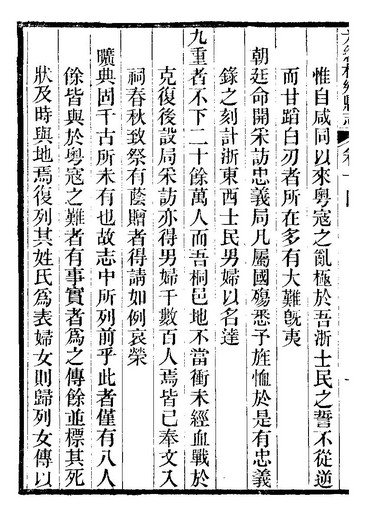 惟自咸同以來粵寇之亂極於吾浙士民之誓不從逆
而甘蹈白刃者所在多有大難旣夷
朝廷命開采訪忠義局凡屬國殤悉予旌恤於是有忠義
錄之刻計浙東西士民男婦以名達
九重者不下二十餘萬人而吾桐邑地不當衝未經血戰於
克復後設局采訪亦得男婦千數百人焉皆已奉文入
祠春秋致祭有蔭贈者得請如例哀榮
曠典固千古所未有也故志中所列前乎此者僅有八人
餘皆與於粵寇之難者有事實者爲之傳餘並標其死
狀及時與地焉復列其姓氏爲表婦女則歸列女傳以